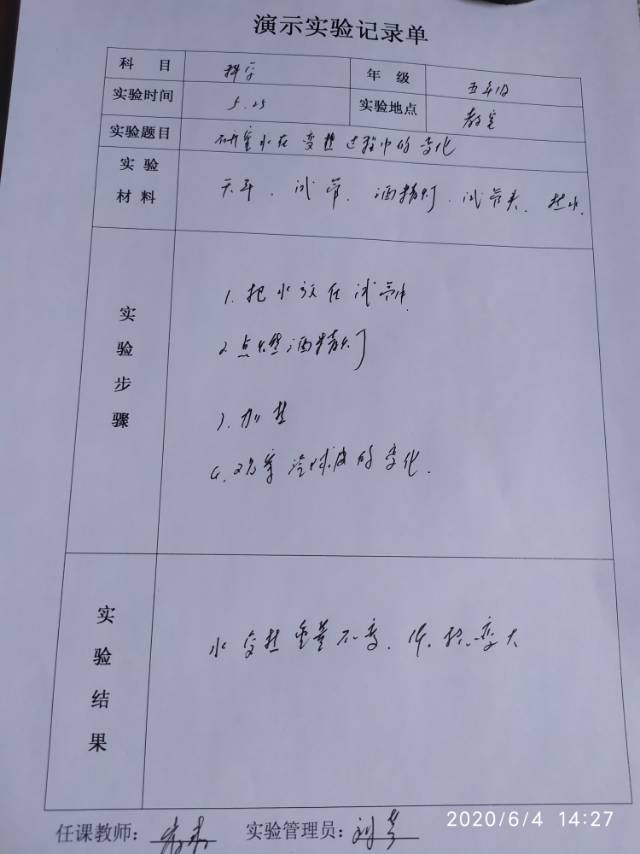 演示实验记录单
科 目 科学 年 级 五年级
实验时间 5.25 实验地点 教室
实验题目 研究水在变热过程中的变化
实 验 材 料 天平、试管、酒精灯、试管夹、热水
实验步骤
1. 把水放在试管中
2. 点燃酒精灯
3. 加热
4. 观察 气球皮的变化.
实验结果
水变热重量不变、体积变大
任课教师: 实验管理员: 刘
2020/6/4 14:27